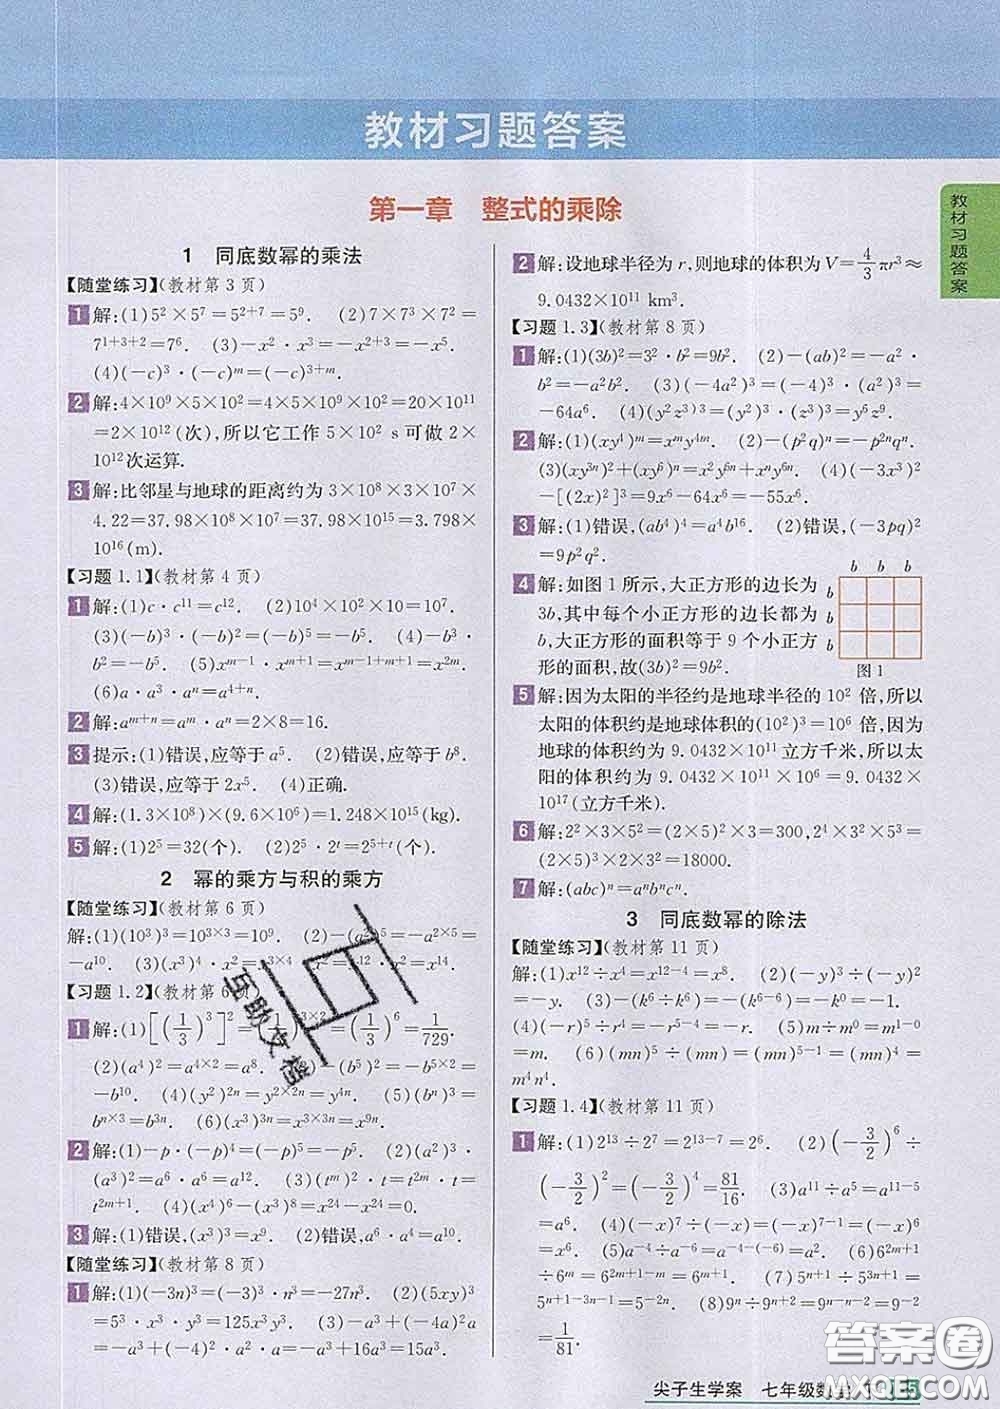 教材习题答案
第一章 整式的乘除
1 同底数幂的乘法
【随堂练习】(教材第 3 页)
1 解:(1)5²×5⁷=5²⁺⁷=5⁹. (2)7×7³×7²=
7¹⁺³⁺²=7⁶. (3)-x²·x³=-x²⁺³=-x⁵.
(4)(-c)³·(-c)ᵐ=(-c)³⁺ᵐ.
2 解:4×10⁹×5×10²=4×5×10⁹×10²=20×10¹¹
=2×10¹²(次),所以它工作 5×10² s 可做 2×
10¹²次运算.
3 解:比邻星与地球的距离约为 3×10⁸×3×10⁷×
4.22=37.98×10⁸×10⁷=37.98×10¹⁵=3.798×
10¹⁶(m).
【习题 1.1】(教材第 4 页)
1 解:(1)c·c¹¹=c¹². (2)10⁴×10²×10=10⁷.
(3)(-b)³·(-b)²=(-b)⁵=-b⁵. (4)-b³·
b²=-b⁵. (5)xᵐ⁻¹·xᵐ⁺¹=xᵐ⁻¹⁺ᵐ⁺¹=x²ᵐ.
(6)a·a³·aⁿ=a⁴⁺ⁿ.
2 解:aᵐ⁺ⁿ=aᵐ·aⁿ=2×8=16.
3 提示:(1)错误,应等于 a⁵. (2)错误,应等于 b⁸.
(3)错误,应等于 2x⁵. (4)正确.
4 解:(1.3×10⁸)×(9.6×10⁶)=1.248×10¹⁵(kg).
5 解:(1)2⁵=32(个). (2)2⁵·2ᵗ=2⁵⁺ᵗ(个).
2 幂的乘方与积的乘方
【随堂练习】(教材第 6 页)
解:(1)(10³)³=10³ˣ³=10⁹. (2)-(a²)⁵=-a²ˣ⁵=
-a¹⁰. (3)(x³)⁴·x²=x¹²·x²=x¹⁴.
【习题 1.2】(教材第 6 页
1 解:(1)[(1/3)³]²=()³ˣ²=(1/3)⁶=1/729.
(2)(a⁴)²=a⁴ˣ²=a⁸. ²)⁵=-b⁵ˣ²=
-b¹⁰. (4)(y²)²ⁿ=y²ˣ²ⁿ=y⁴ⁿ. (5)
bⁿˣ³=b³ⁿ. (6)(x³ⁿ)³=x³ⁿˣ³=x⁹ⁿ.
2 解:(1)-p·(-p)⁴=(-p)⁵=-p⁵. (2)(a²)³·
(a³)²=a⁶·a⁶=a¹². (3)(tᵐ)²·t=t²ᵐ·t=
t²ᵐ⁺¹. (4)(x⁴)⁶-(x³)⁸=x²⁴-x²⁴=0.
3 解:(1)错误,(x³)³=x⁹. (2)错误,a⁶·a⁴=a¹⁰.
【随堂练习】(教材第 8 页)
1 解:(1)(-3n)³=(-3)³·n³=-27n³. (2)(5xy)³
=5³·x³·y³=125x³y³. (3)-a³+(-4a)²a
=-a³+(-4)²·a²·a=-a³+16a³=15a³.
2 解:设地球半径为 r,则地球的体积为 V=4/3πr³≈
9.0432×10¹¹ km³.
【习题 1.3】(教材第 8 页)
1 解:(1)(3b)²=3²·b²=9b². (2)-(ab)²=-a²·
b²=-a²b². (3)(-4a²)³=(-4)³·(a²)³=
-64a⁶. (4)(y²z³)³=(y²)³·(z³)³=y⁶z⁹.
2 解:(1)(xy⁴)ᵐ=xᵐy⁴ᵐ. (2)-(p²q)ⁿ=-p²ⁿqⁿ.
(3)(xy³ⁿ)²+(xy⁶)ⁿ=x²y⁶ⁿ+xⁿy⁶ⁿ. (4)(-3x³)²
-[(2x)²]³=9x⁶-64x⁶=-55x⁶.
3 解:(1)错误,(ab⁴)⁴=a⁴b¹⁶. (2)错误,(-3pq)²
=9p²q².
4 解:如图 1 所示,大正方形的边长为
3b,其中每个小正方形的边长都为
b,大正方形的面积等于 9 个小正方
形的面积,故(3b)²=9b².
b b b
b
b
b
图 1
5 解:因为太阳的半径约是地球半径的 10² 倍,所以
太阳的体积约是地球体积的(10²)³=10⁶ 倍,因为
地球的体积约为 9.0432×10¹¹立方千米,所以太
阳的体积约为 9.0432×10¹¹×10⁶=9.0432×
10¹⁷(立方千米).
6 解:2²×3×5²=(2×5)²×3=300,2⁴×3²×5³=
(2×5)³×2×3²=18000.
7 解:(abc)ⁿ=aⁿbⁿcⁿ.
3 同底数幂的除法
【随堂练习】(教材第 11 页)
解:(1)x¹²÷x⁴=x¹²⁻⁴=x⁸. (2)(-y)³÷(-y)²
=-y. (3)-(k⁶÷k⁶)=-(k⁶⁻⁶)=-k⁰=-1.
(4)(-r)⁵÷r⁴=-r⁵⁻⁴=-r. (5)m÷m⁰=m¹⁻⁰
=m. (6)(mn)⁵÷(mn)=(mn)⁵⁻¹=(mn)⁴=
m⁴n⁴.
【习题 1.4】(教材第 11 页)
1 解:(1)2¹³÷2⁷=2¹³⁻⁷=2⁶. (2)(-3/2)⁶÷
(-3/2)²=(-3/2)⁴=81/16. (3)a¹¹÷a⁵=a¹¹⁻⁵
=a⁶. (4)(-x)⁷÷(-x)=(-x)⁷⁻¹=(-x)⁶
=x⁶. (5)a⁻⁴÷a⁻⁶=a⁻⁴⁻⁽⁻⁶⁾=a². (6)6²ᵐ⁺¹
÷6ᵐ=6²ᵐ⁺¹⁻ᵐ=6ᵐ⁺¹. (7)5ⁿ⁺¹÷5³ⁿ⁺¹=
5ⁿ⁺¹⁻³ⁿ⁻¹=5⁻²ⁿ. (8)9ⁿ÷9ⁿ⁺²=9ⁿ⁻ⁿ⁻²=9⁻²
=1/81.
教材习题答案
互助文档
答案圈
MXQE
尖子生学案 七年级数学